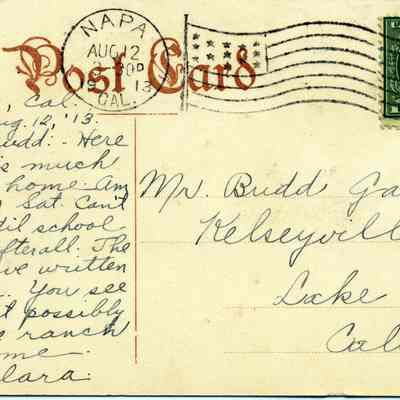 NAPA
AUG 12
19 13
CAL.
Post Card
, Cal.
ug. 12, '13.
udd:- Here
is much
home. Am
Sat. Can't
til school
fterall. The
ve written
You see
t possibly
e ranch
ome.
lara.
Mr. Budd Ga
Kelseyvill
Lake
Cal